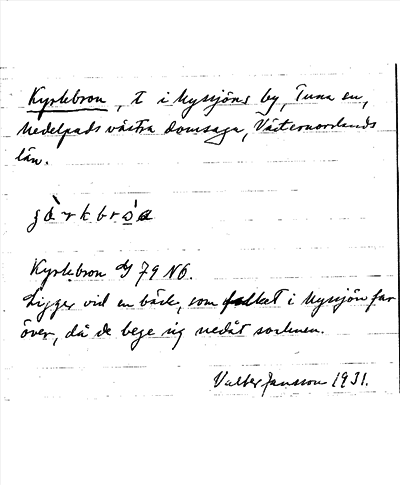 Kyrkbron, t i Nysjöns by, Tuna sn,
Medelpads västra domsaga, Västernorrlands
län.
Kyrkbron dg 79 N6.
Ligger vid en bäck, som folket i Nysjön far
över, då de bege sig nedåt socknen.
Valter Jansson 1931.